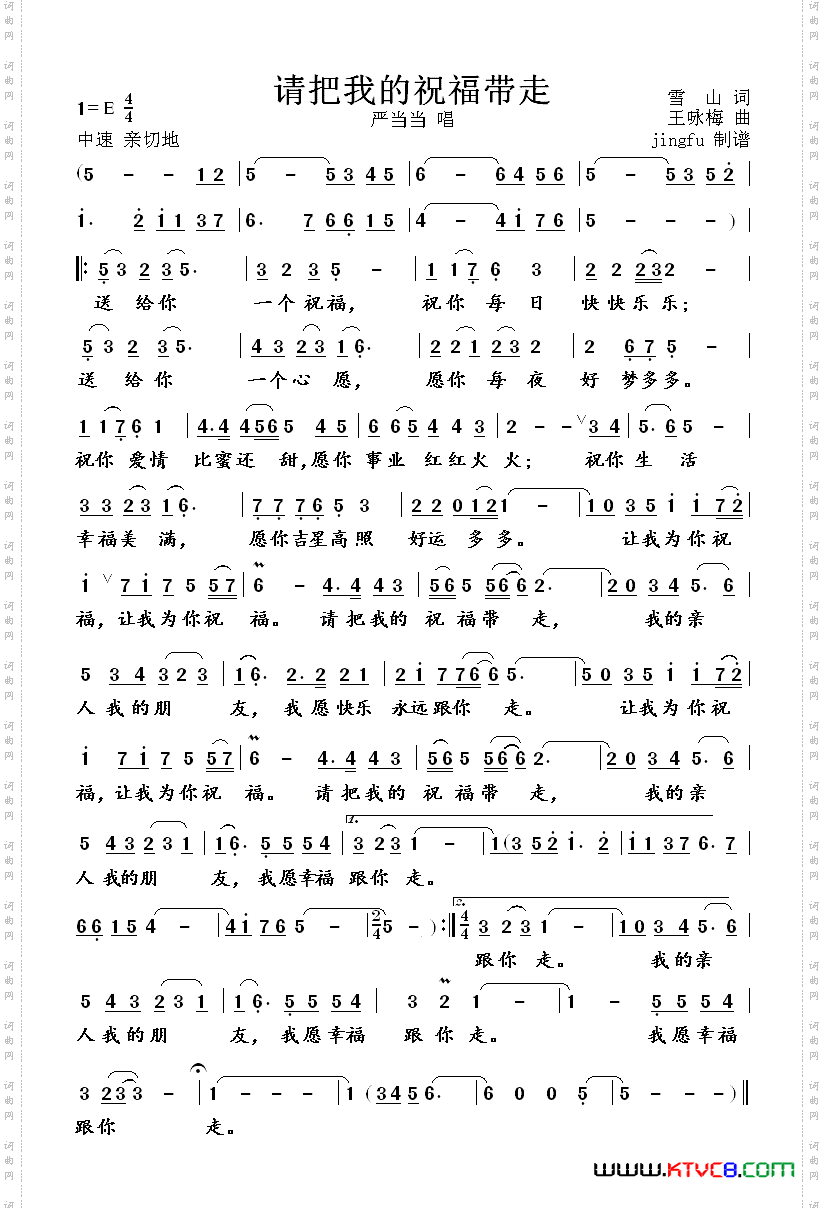 请把我的祝福带走
1=E 4/4
严当当 唱
雪 山 词
王咏梅 曲
中速 亲切地
jingfu 制谱
(5 - - 12 | 5 - 53 45 | 6 - 64 56 | 5 - 53 52
i· 2 i1 37 | 6· 7 66 15 | 4 - 4i 76 | 5 - - - )
‖: 53 23 5· | 3 2 3 5 - | 1 17 6 3 | 2 2 232 -
送 给 你 一个 祝福, 祝你 每 日 快快乐乐;
53 2 35· | 43 23 16· | 221 232 | 2 67 5 -
送 给你 一个心 愿, 愿你 每夜 好 梦多多。
11761 | 4·4 4565 45 | 6654 43 | 2 - - ∨34 | 5·65 -
祝你 爱情 比蜜还 甜,愿你 事业 红红火 火; 祝你生 活
33 23 16· | 77 765 3 | 220121 - | 1035 i i72
幸福美 满, 愿你吉星高照 好运 多多。 让我为你祝
i ∨ 7i75 557 | 6 - 4·4 43 | 565 5662· | 20 34 5·6
福,让我为你祝 福。 请把我的 祝福带 走, 我的亲
5 34 323 | 16· 2·2 21 | 2i 77665· | 5035 i i72
人我的朋 友, 我愿快乐 永远跟你 走。 让我为你祝
i 7i75 557 | 6 - 4·4 43 | 565 5662· | 20 34 5·6
福,让我为你祝 福。 请把我的 祝福带 走, 我的亲
1.
5 43231 | 16· 5 554 | 3 231 - | 1(352i· 2 | i1376· 7
人我的朋 友,我愿幸福 跟你 走。
2.
66154 - | 4i765 - | 2/4 5 - ):‖ 4/4 3 231 - | 1034 5·6
跟你 走。 我的亲
5 43 231 | 16· 5 554 | 3 2 1 - | 1 - 5 554
人我的朋 友, 我愿幸福 跟你 走。 我愿幸福
3 233 - | 1 - - - | 1 (3456· | 6 0 0 5 | 5 - - - )‖
跟你 走。
www.KTVC8.com
词曲网